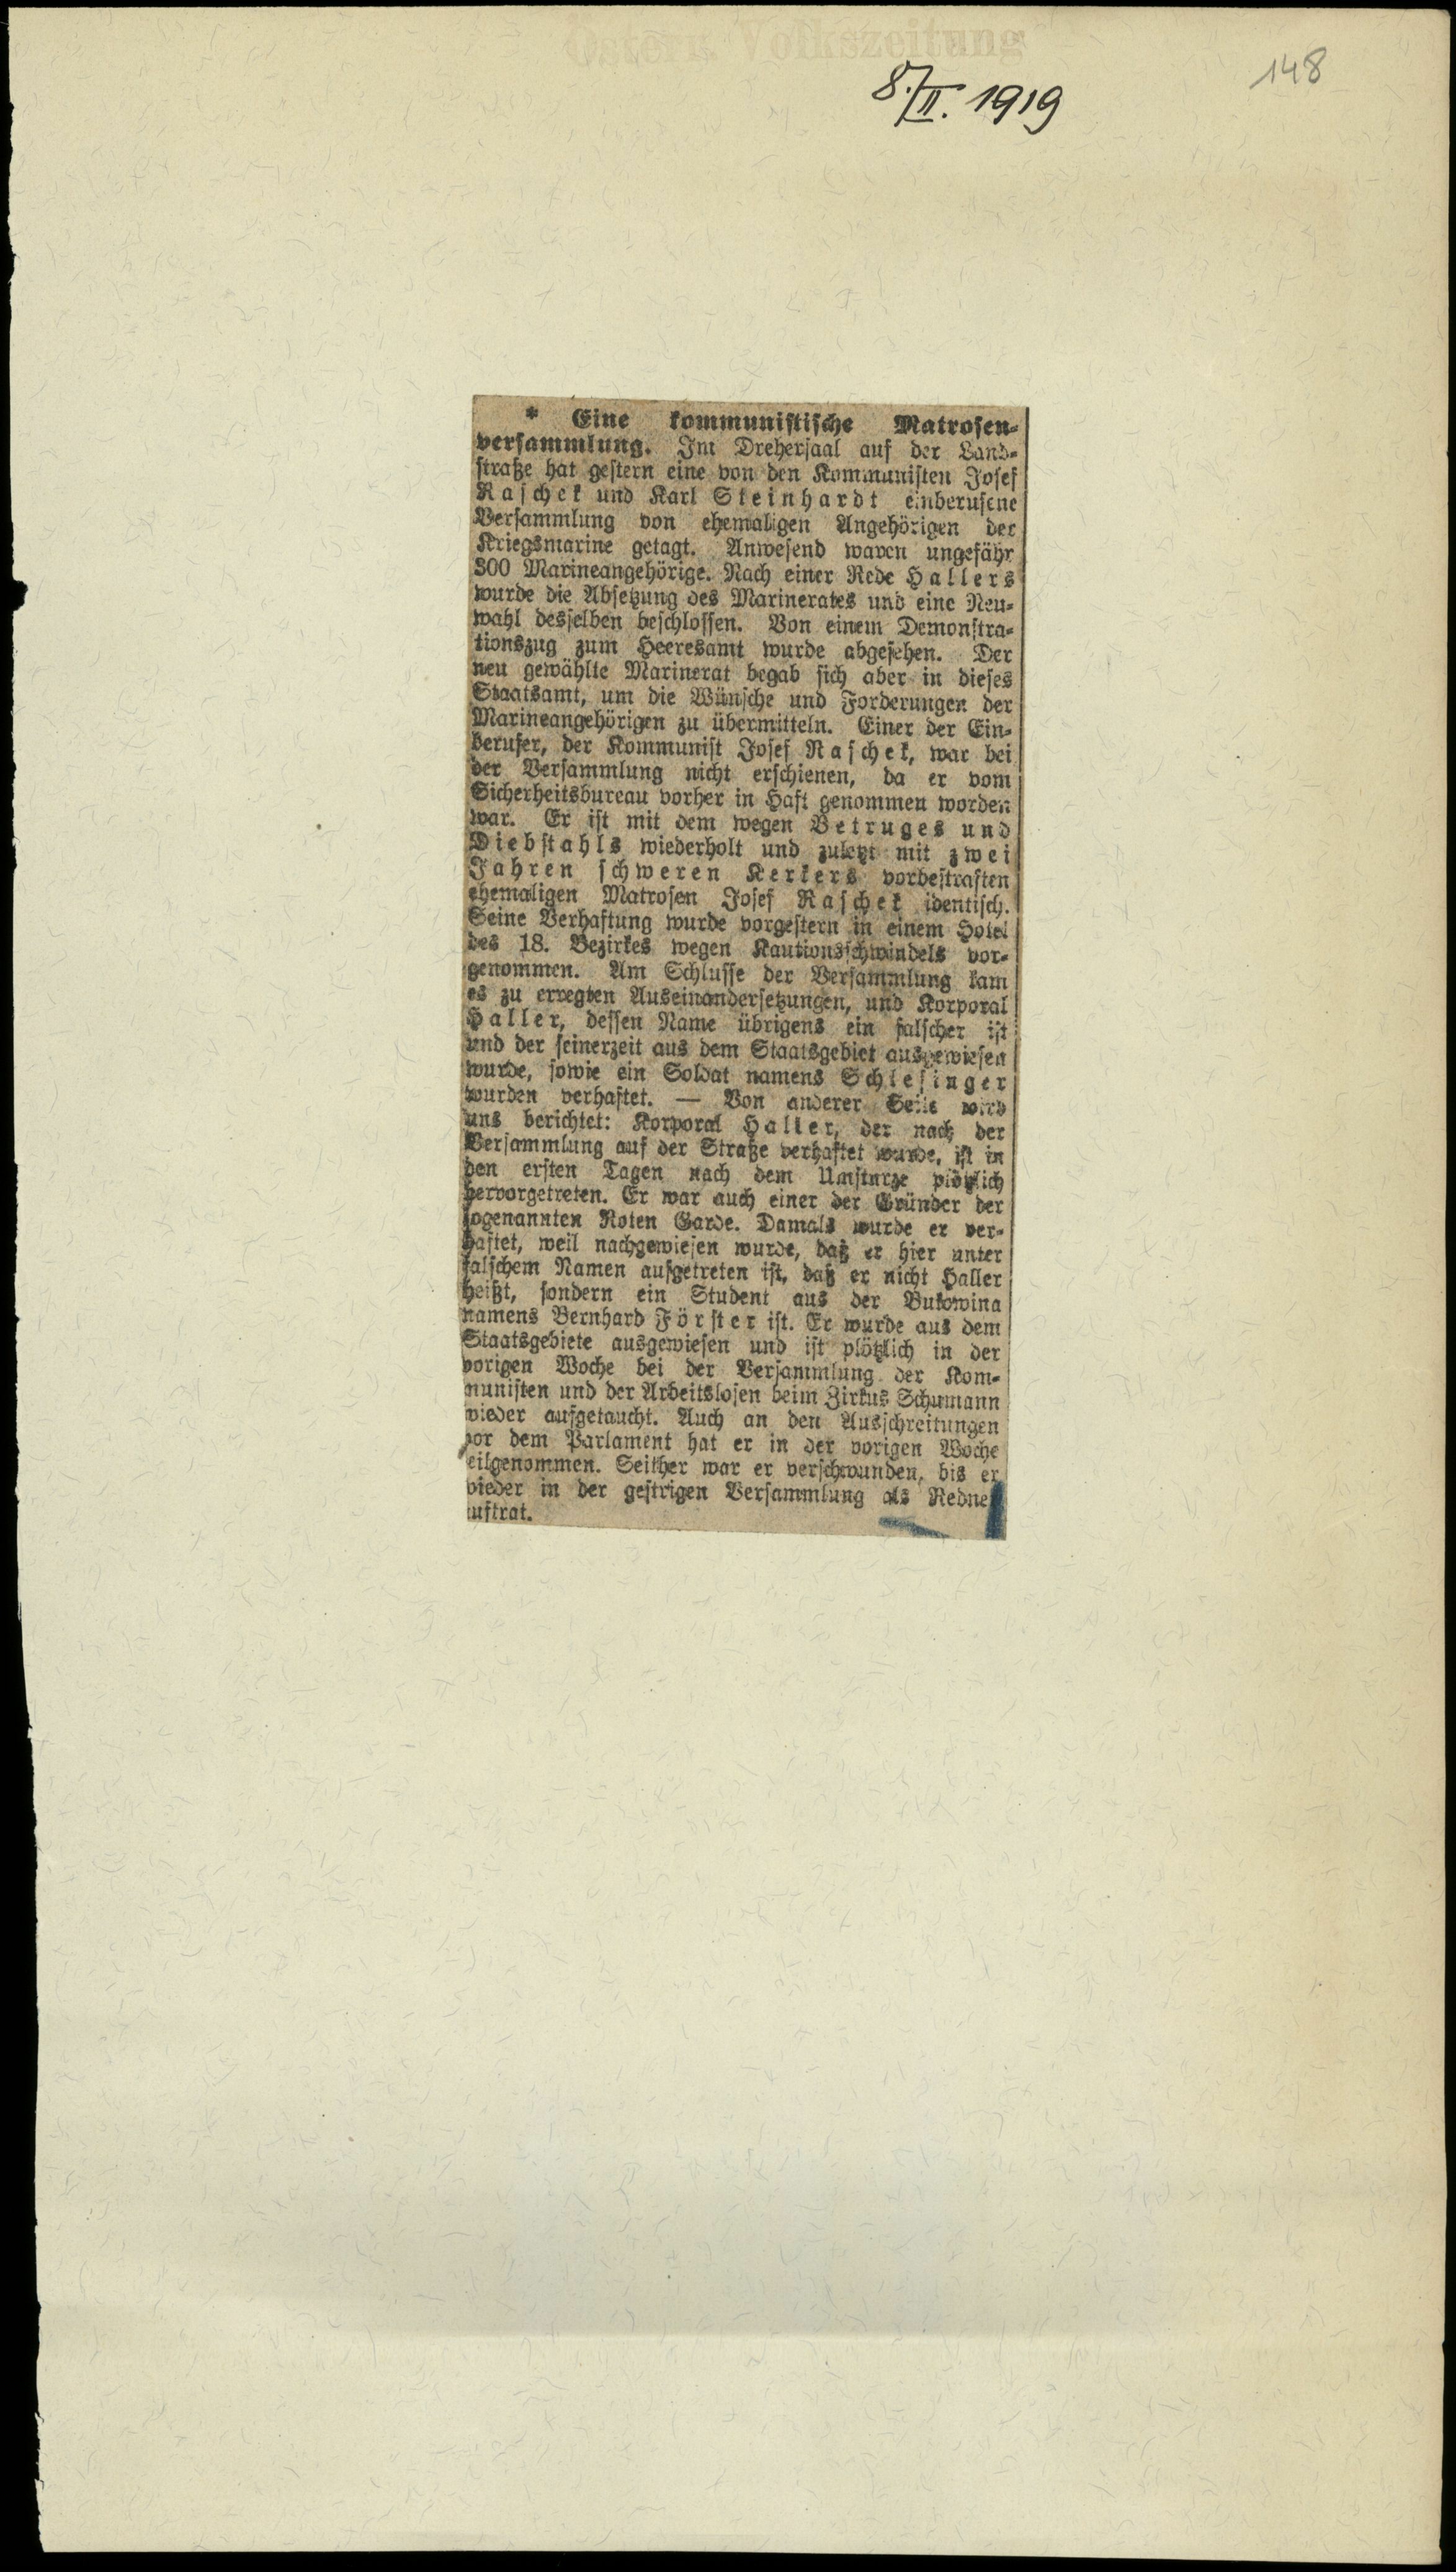 Österr. Volkszeitung
148
8./II. 1919
* Eine kommunistische Matrosen-
versammlung. Im Drehersaal auf der Land-
straße hat gestern eine von den Kommunisten Josef
Raschek und Karl Steinhardt einberufene
Versammlung von ehemaligen Angehörigen der
Kriegsmarine getagt. Anwesend waren ungefähr
300 Marineangehörige. Nach einer Rede Hallers
wurde die Absetzung des Marinerates und eine Neu-
wahl desselben beschlossen. Von einem Demonstra-
tionszug zum Heeresamt wurde abgesehen. Der
neu gewählte Marinerat begab sich aber in dieses
Staatsamt, um die Wünsche und Forderungen der
Marineangehörigen zu übermitteln. Einer der Ein-
berufer, der Kommunist Josef Raschek, war bei
der Versammlung nicht erschienen, da er vom
Sicherheitsbureau vorher in Haft genommen worden
war. Er ist mit dem wegen Betruges und
Diebstahls wiederholt und zuletzt mit zwei
Jahren schweren Kerkers vorbestraften
ehemaligen Matrosen Josef Raschek identisch.
Seine Verhaftung wurde vorgestern in einem Hotel
des 18. Bezirkes wegen Kautionsschwindels vor-
genommen. Am Schlusse der Versammlung kam
es zu erregten Auseinandersetzungen, und Korporal
Haller, dessen Name übrigens ein falscher ist
und der seinerzeit aus dem Staatsgebiet ausgewiesen
wurde, sowie ein Soldat namens Schlesinger
wurden verhaftet. — Von anderer Seite wird
uns berichtet: Korporal Haller, der nach der
Versammlung auf der Straße verhaftet wurde, ist in
den ersten Tagen nach dem Umsturze plötzlich
hervorgetreten. Er war auch einer der Gründer der
sogenannten Roten Garde. Damals wurde er ver-
haftet, weil nachgewiesen wurde, daß er hier unter
falschem Namen aufgetreten ist, daß er nicht Haller
heißt, sondern ein Student aus der Bukowina
namens Bernhard Förster ist. Er wurde aus dem
Staatsgebiete ausgewiesen und ist plötzlich in der
vorigen Woche bei der Versammlung der Kom-
munisten und der Arbeitslosen beim Zirkus Schumann
wieder aufgetaucht. Auch an den Ausschreitungen
vor dem Parlament hat er in der vorigen Woche
eilgenommen. Seither war er verschwunden, bis er
wieder in der gestrigen Versammlung als Redner
auftrat.